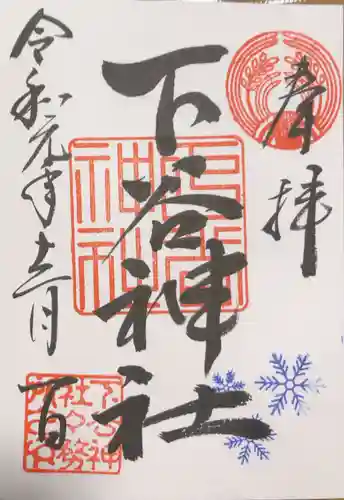 奉拝
下谷神社
令和元年十二月一日
下谷神社
下谷神社社務所之印